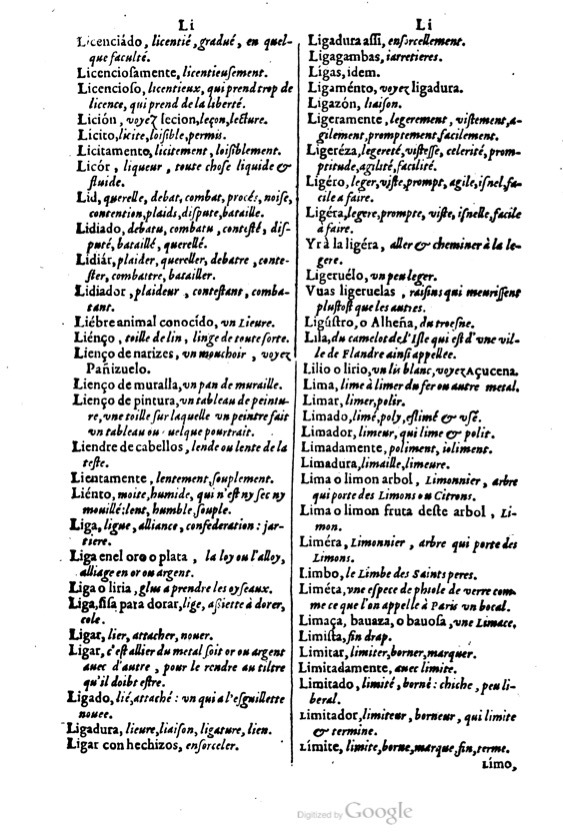 Li
Licenciádo, licentié, gradué, en quel-
que faculté.
Licenciosamente, licentieusement.
Licencioso, licentieux, qui prend trop de
licence, qui prend de la liberté.
Lición, voyez lecion, leçon, lecture.
Licito, licite, loisible, permis.
Licitamento, licitement, loisiblement.
Licór, liqueur, toute chose liquide &
fluide.
Lid, querelle, debat, combat, procés, noise,
contention, plaids, dispute, bataille.
Lidiado, debatu, combatu, contesté, dis-
puté, bataillé, querellé.
Lidiár, plaider, quereller, debatre, conte-
ster, combattre, batailler.
Lidiador, plaideur, contestant, comba-
tant.
Liébre animal conocído, vn Lieure.
Liénço, toille de lin, linge de toute sorte.
Lienço de narizes, vn mouchoir, voyez
Pañizuelo.
Lienço de muralla, vn pan de muraille.
Lienço de pintura, vn tableau de peintu-
re, vne toille sur laquelle vn peintre fait
vn tableau ou uelque pourtrait.
Liendre de cabellos, lende ou lente de la
teste.
Lientamente, lentement, souplement.
Liénto, moite, humide, qui n'est ny sec ny
mouillé: lent, humble, souple.
Liga, ligue, alliance, confederation: jar-
tiere.
Liga en el oro o plata, la loy ou l'alloy,
alliage en or ou argent.
Liga o liria, glus a prendre les oyseaux.
Liga, sisa para dorar, lige, assiette à dorer,
cole.
Ligar, lier, attacher, nouer.
Ligar, c'est allier du metal soit or ou argent
auec d'autre, pour le rendre au tiltre
qu'il doibt estre.
Ligado, lié, attaché: vn qui a l'esguillette
nouee.
Ligadura, lieure, liaison, ligature, lien.
Ligar con hechizos, ensorceler.
Li
Ligadura assi, ensorcellement.
Ligagambas, iarretieres.
Ligas, idem.
Ligaménto, voyez ligadura.
Ligazón, liaison.
Ligeramente, legerement, vistement, a-
gilement, promptement, facilement.
Ligeréza, legereté, vistesse, celerité, prom-
ptitude, agilité, facilité.
Ligéro, leger, viste, prompt, agile, isnel, fa-
cile a faire.
Ligéra, legere, prompte, viste, isnelle, facile
à faire.
Yr à la ligéra, aller & cheminer à la le-
gere.
Ligeruélo, vn peu leger.
Vuas ligeruelas, raisins qui meurissent
plustost que les autres.
Ligústro, o Alheña, du troesne.
Lila, du camelot de l'Isle qui est d'vne vil-
le de Flandre ainsi appellee.
Lilio o lirio, vn lis blanc, voyez Açucena.
Lima, lime à limer du fer ou autre metal.
Limar, limer, polir.
Limado, limé, poly, estimé & vsé.
Limador, limeur, qui lime & polit.
Limadamente, poliment, ioliment.
Limadura, limaille, limeure.
Lima o limon arbol, Limonnier, arbre
qui porte des Limons ou Citrons.
Lima o limon fruta deste arbol, Li-
mon.
Liméra, Limonnier, arbre qui porte des
Limons.
Limbo, le Limbe des Saints peres.
Liméta, vne espece de phiole de verre com
me ce que l'on appelle à Paris vn bocal.
Limaça, bauaza, o bauosa, vne Limace.
Limista, fin drap.
Limitar, limiter, borner, marquer.
Limitadamente, auec limite.
Limitado, limité, borné: chiche, peu li-
beral.
Limitador, limiteur, borneur, qui limite
& termine.
Límite, limite, borne, marque, fin, terme.
Límo,
Digitized by Google